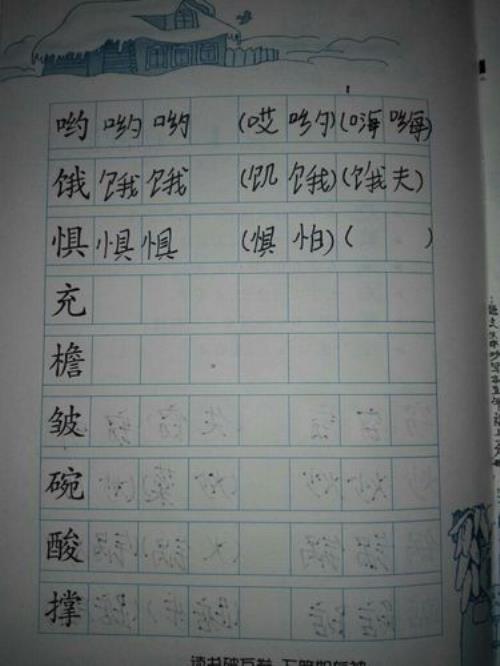 哟 哟 哟 (哎 哟)(嗨 嗨)
饿 饿 饿 (饥 饿)(饿 夫)
惧 惧 惧 (惧 怕)( )
充
檐
皱
碗
酸
撑
读书破万卷 下笔如有神